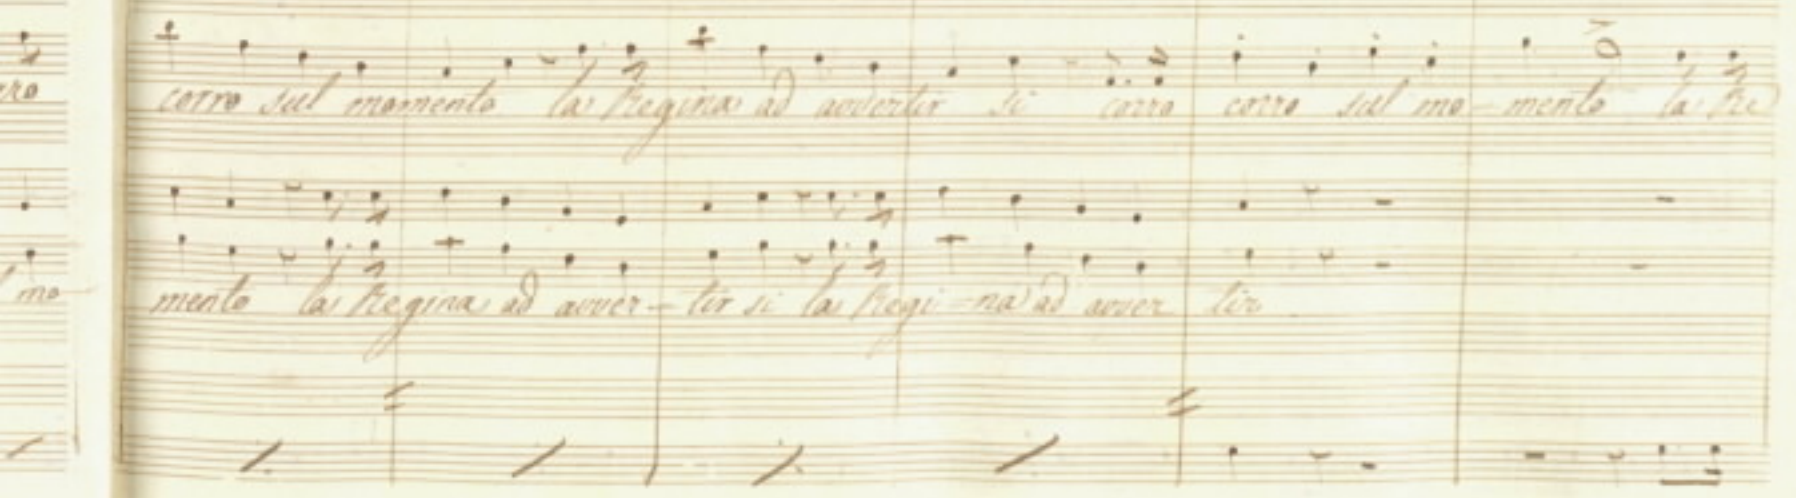 rro corro sul momento la Regina ad avvertir si corro corro sul mo-mento la Re
mo mento la Regina ad avver-tir si la Regi=na ad avver tir